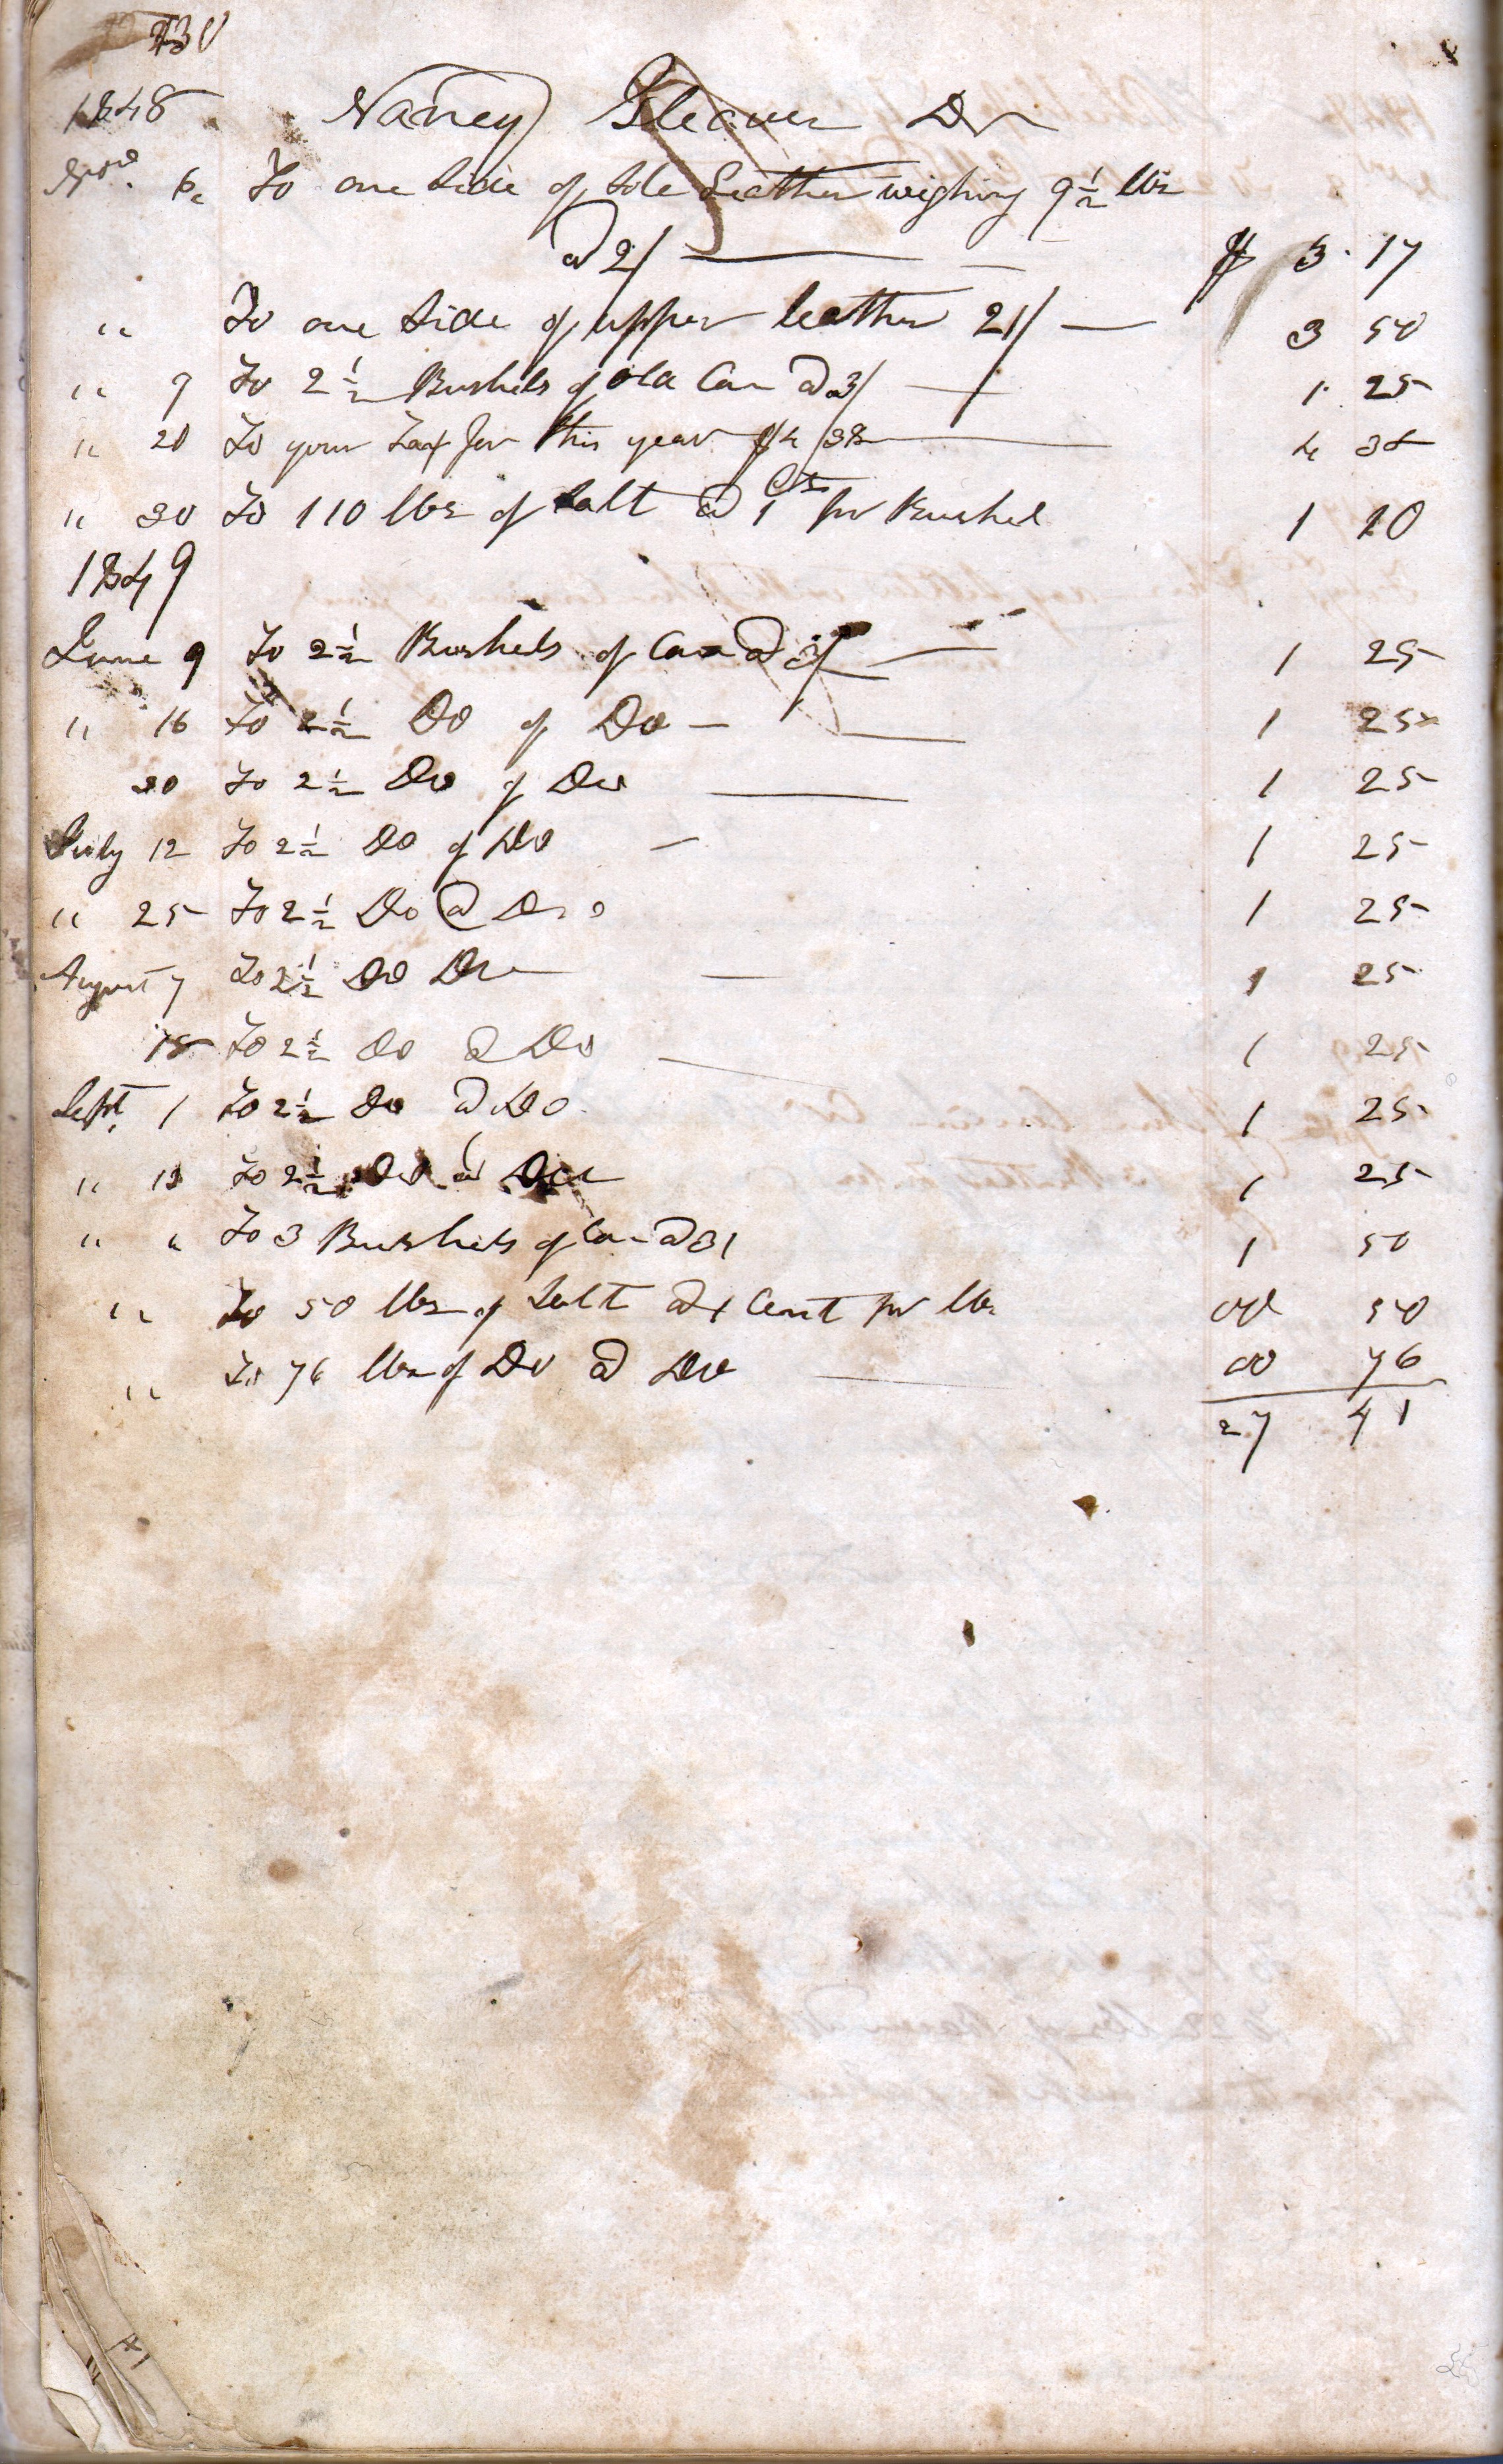 430
1848 Nancy Gleaver Dr
6 To one Side of Sole Leather weighing 9 1/2 lbs
@ 2/ $ 3. 17
" To one Side of upper leather 21/ 3 50
" 9 To 2 1/2 Bushels of old Corn @ 3/ 1. 25
" 20 To your Tax for this year $4/38 4 38
" 30 To 110 lbs of Salt @ 1 Cts pr Bushel 1 10
1849
June 9 To 2 1/2 Bushels of Corn @ 3/ 1 25
" 16 To 2 1/2 Do of Do 1 25
30 To 2 1/2 Do of Do 1 25
July 12 To 2 1/2 Do of Do 1 25
" 25 To 2 1/2 Do @ Do 1 25
August 7 To 2 1/2 Do Do 1 25
18 To 2 1/2 Do @ Do 1 25
Sept. 1 To 2 1/2 Do @ Do 1 25
" 13 To 2 1/2 Do @ Do 1 25
" " To 3 Bushels of Corn @ 3/ 1 50
" To 50 lbs of Salt @ 1 Cent pr lbs 00 50
" To 76 lbs of Do @ Do 00 76
27 41